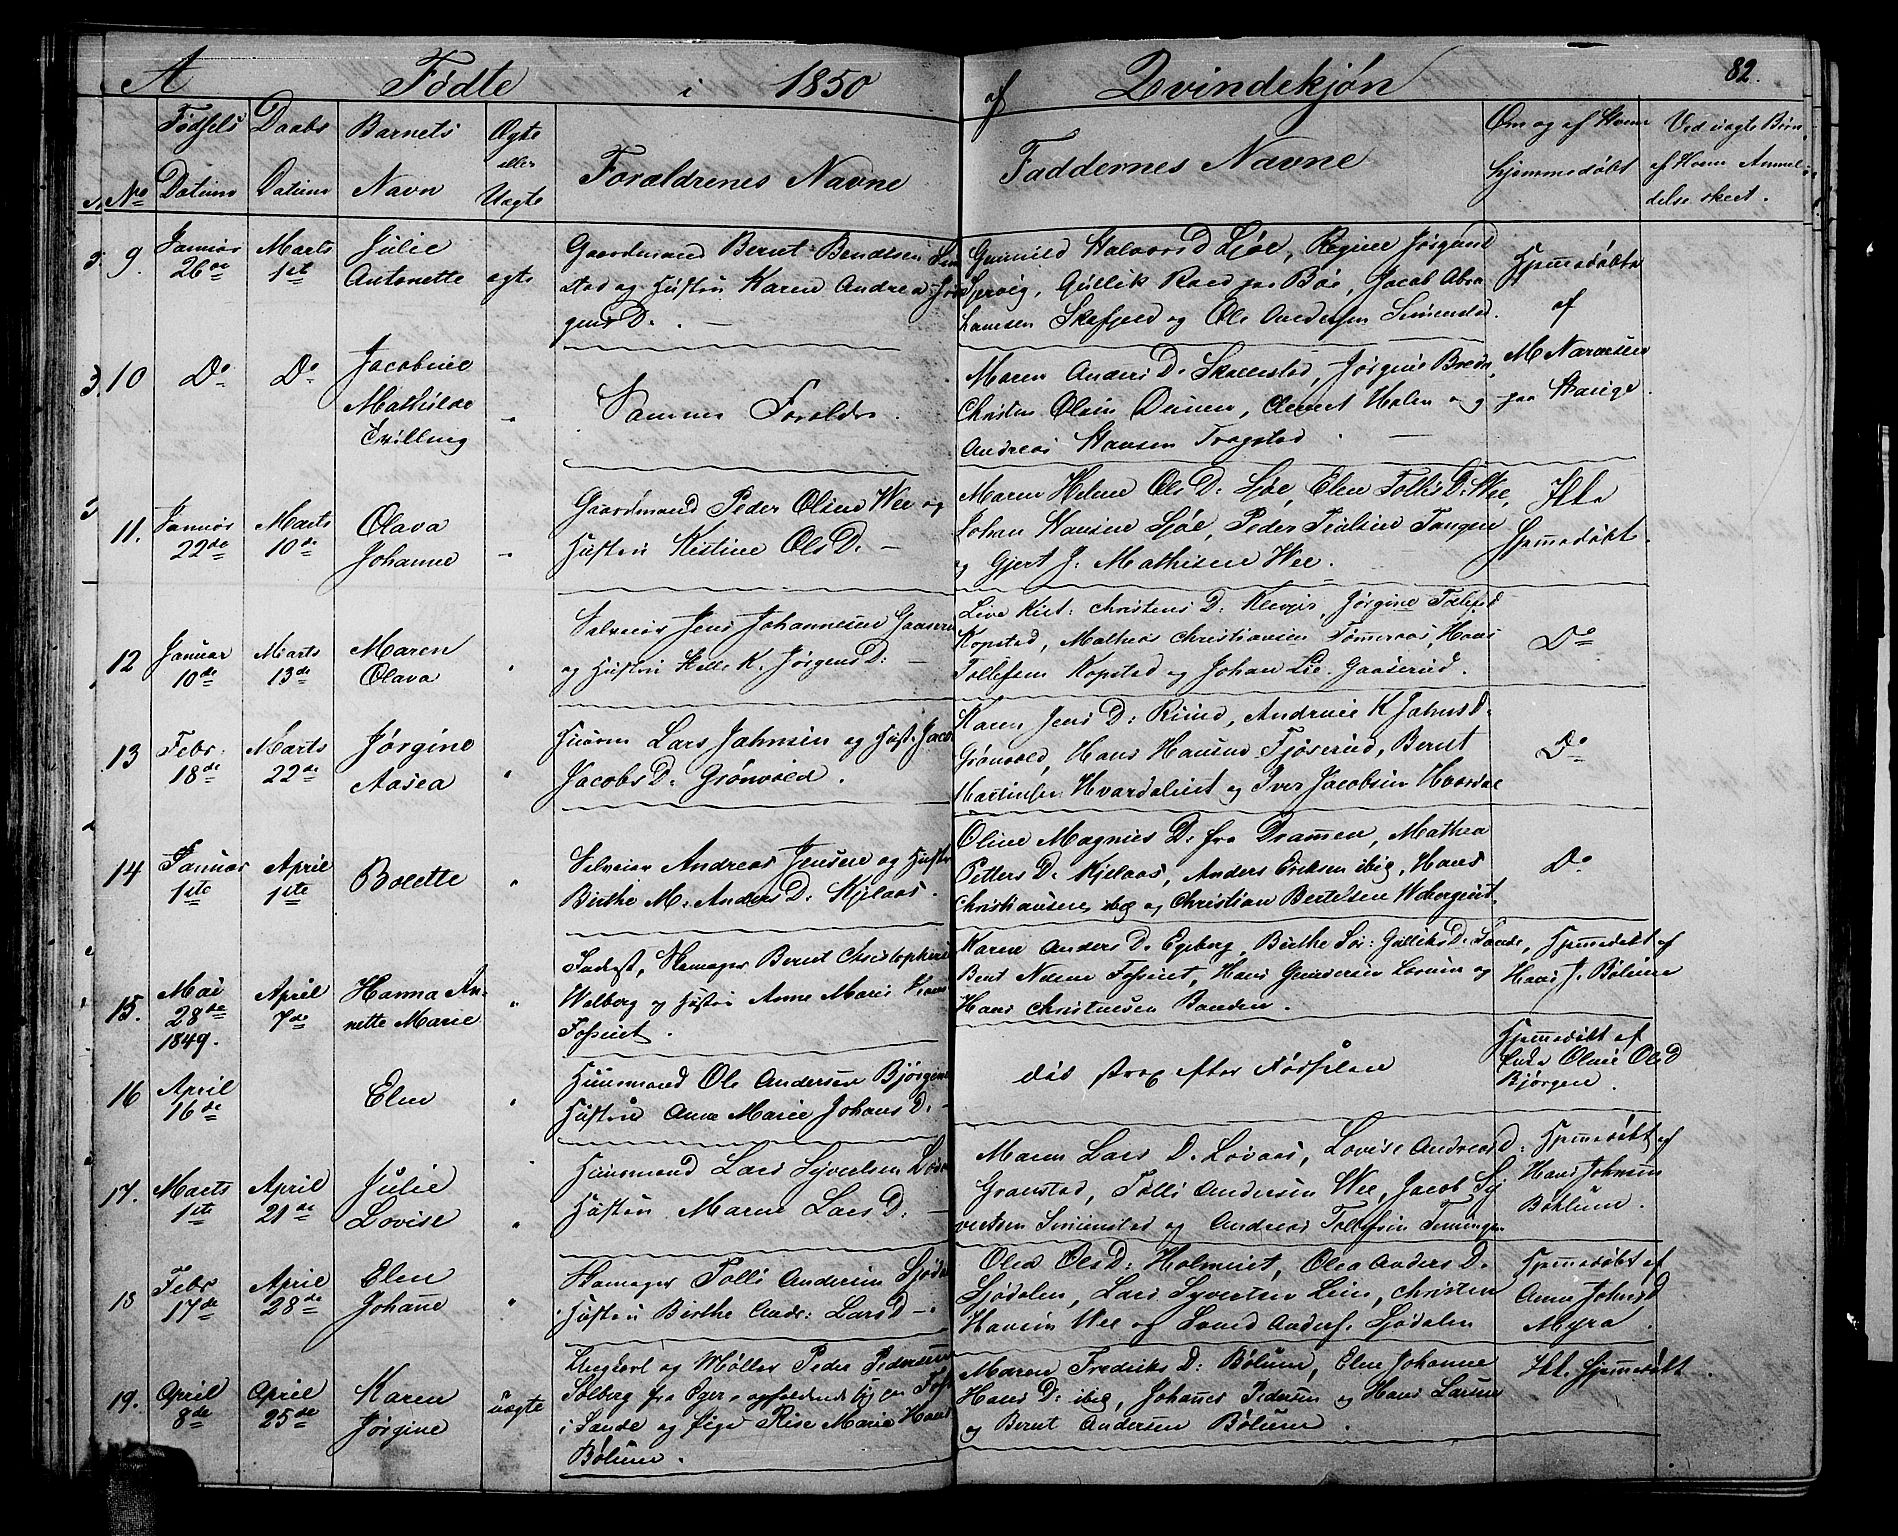 A Fødte i 1850 af Qvindekjøn 82.
No Fødsels Datum Daabs Datum Barnets Navn Ægte eller Uægte Forældrenes Navne Faddernes Navne Om og af Hvem Hjemmedøbt Ved uægte Børn af Hvem Anmeldelse skeet.
9. Januar 26de Marts 1st Julie Antonette ægte
Gaardmand Bernt Bendtsen
stad og Hustru Karen Andrea Jør
gens D.
Gunnild Halvors D Ljøe, Regine Jørgens
Gullik Roed paa Böe, Jacob Abra
hamsen Skafjeld og Ole Andersen Simenstad.
Hjemmedøbte
af
10 Do Do Jacobine
Mathilde
Tvilling
Samme Forældre.
Maren Anders D. Skallestad, Jørgine Bredo
Christen Olsen Dunen, Clemet Holen og
Andreas Hansen Tragstad.
M Narvesen
paa Hange
11. Januar 22de Marts 10de Olava
Johanne
Gaardmand Peder Olsen Wee og
Hustru Kirstine Ols D.
Maren Helene Ols D. Ljøe, Elen Tollis D. Wee,
Johan Hansen Ljöe, Peder Tangen
og Gjert J. Mathisen Wee.
Ikke
Hjemmedøbt.
12 Januar 10de Marts 13de Maren
Olava
Selveier Jens Johannesen Gaaserud
og Hustru Helle K. Jørgens D:
Live Kirst: Christens D. Klevjer, Jørgine Tollefsd
Kopstad, Matheas Christiansen Tømmeraas, Hans
Tollefsen Kopstad og Johan Lie Gaaserud.
Do
13 Febr. 18de Marts 22de Jørgine
Aasea
Huusm Lars Jahnsen og Hust. Jaco
Jacobs D. Grönvold.
Karen Jens D: Ruud, Andrine K Jahns D.
Grönvold, Hans Hansen Fjöserud, Bernt
Martinsen Hvardalseiet og Iver Jacobsen
Do
14 Januar 1ste April 1ste Bolette
Selveier Andreas Jensen og Hustru
Birthe M. Anders D. Kjelaas.
Oline Magnus D. fra Drammen, Mathea
Petters D. Kjelaas, Anders Eriksen ibig, Hans
Christiansen ibig og Christian Bertelsen
Do
15. Mai 28de 1849. April 7de Hanna An-
nette Marie
Bernt Christophersen
Walberg og Hustru Anne Marie
Fosseiet.
Karen Anders D. Egeberg, Birthe Gulliks D. Sande,
Hans
Hans Christensen Banden.
Hjemmedøbt af
Hans J. Bölum
16 April 16de Elen
Huusmand Ole Andersen Bjørgen
Hustru Anne Marie Johans D.
död strax efter Födselen
Hjemmedøbt af
Enke Oline Ols D
Bjørgen.
17. Marts 1ste April 21de Julie
Lovise
Huusmand Lars Syvertsen
Hustru Maren Lars D.
Maren Lars D. Lövaas, Lovise Andreas D:
Granstad, Tolli Andersen Wee, Jacob Sy
vertsen Simenstad og Andreas Tollefsen
Hjemmedøbt af
Hans Johnsen
Böhlum.
18 Febr 17de April 28de Elen
Johane
Tolli Andersen Sjödal
Hustru Birthe Andr: Lars D.
Olea Ols D: Holmeiet, Olea Anders D.
Sjödalen, Lars Syvertsen Lien, Christen
Hansen Wee og Svend Anders. Sjödalen
Hjemmedøbt af
Anne Johns D
Myra.
19. April 8de April 25de Karen
Jørgine
uægte
Ungkarl og Møller Peder Pedersen
Solberg fra Eger, opholdende sig
i Sande og Pige Rise Marie Hans
Bölum.
Maren Fredriks D: Bölum, Elen Johanne
Hans D: ibig, Johannes Pedersen og Hans Larsen
og Bernt Andersen Bölum.
Ikke Hjemmedøbt.